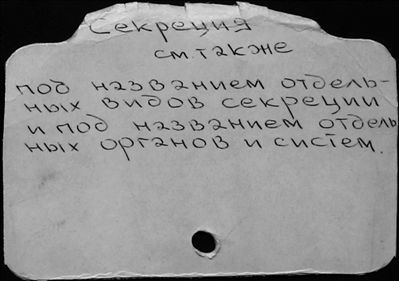 Секреция
см. также
под названием отдель-
ных видов секреции
и под названием отдель
ных органов и систем.